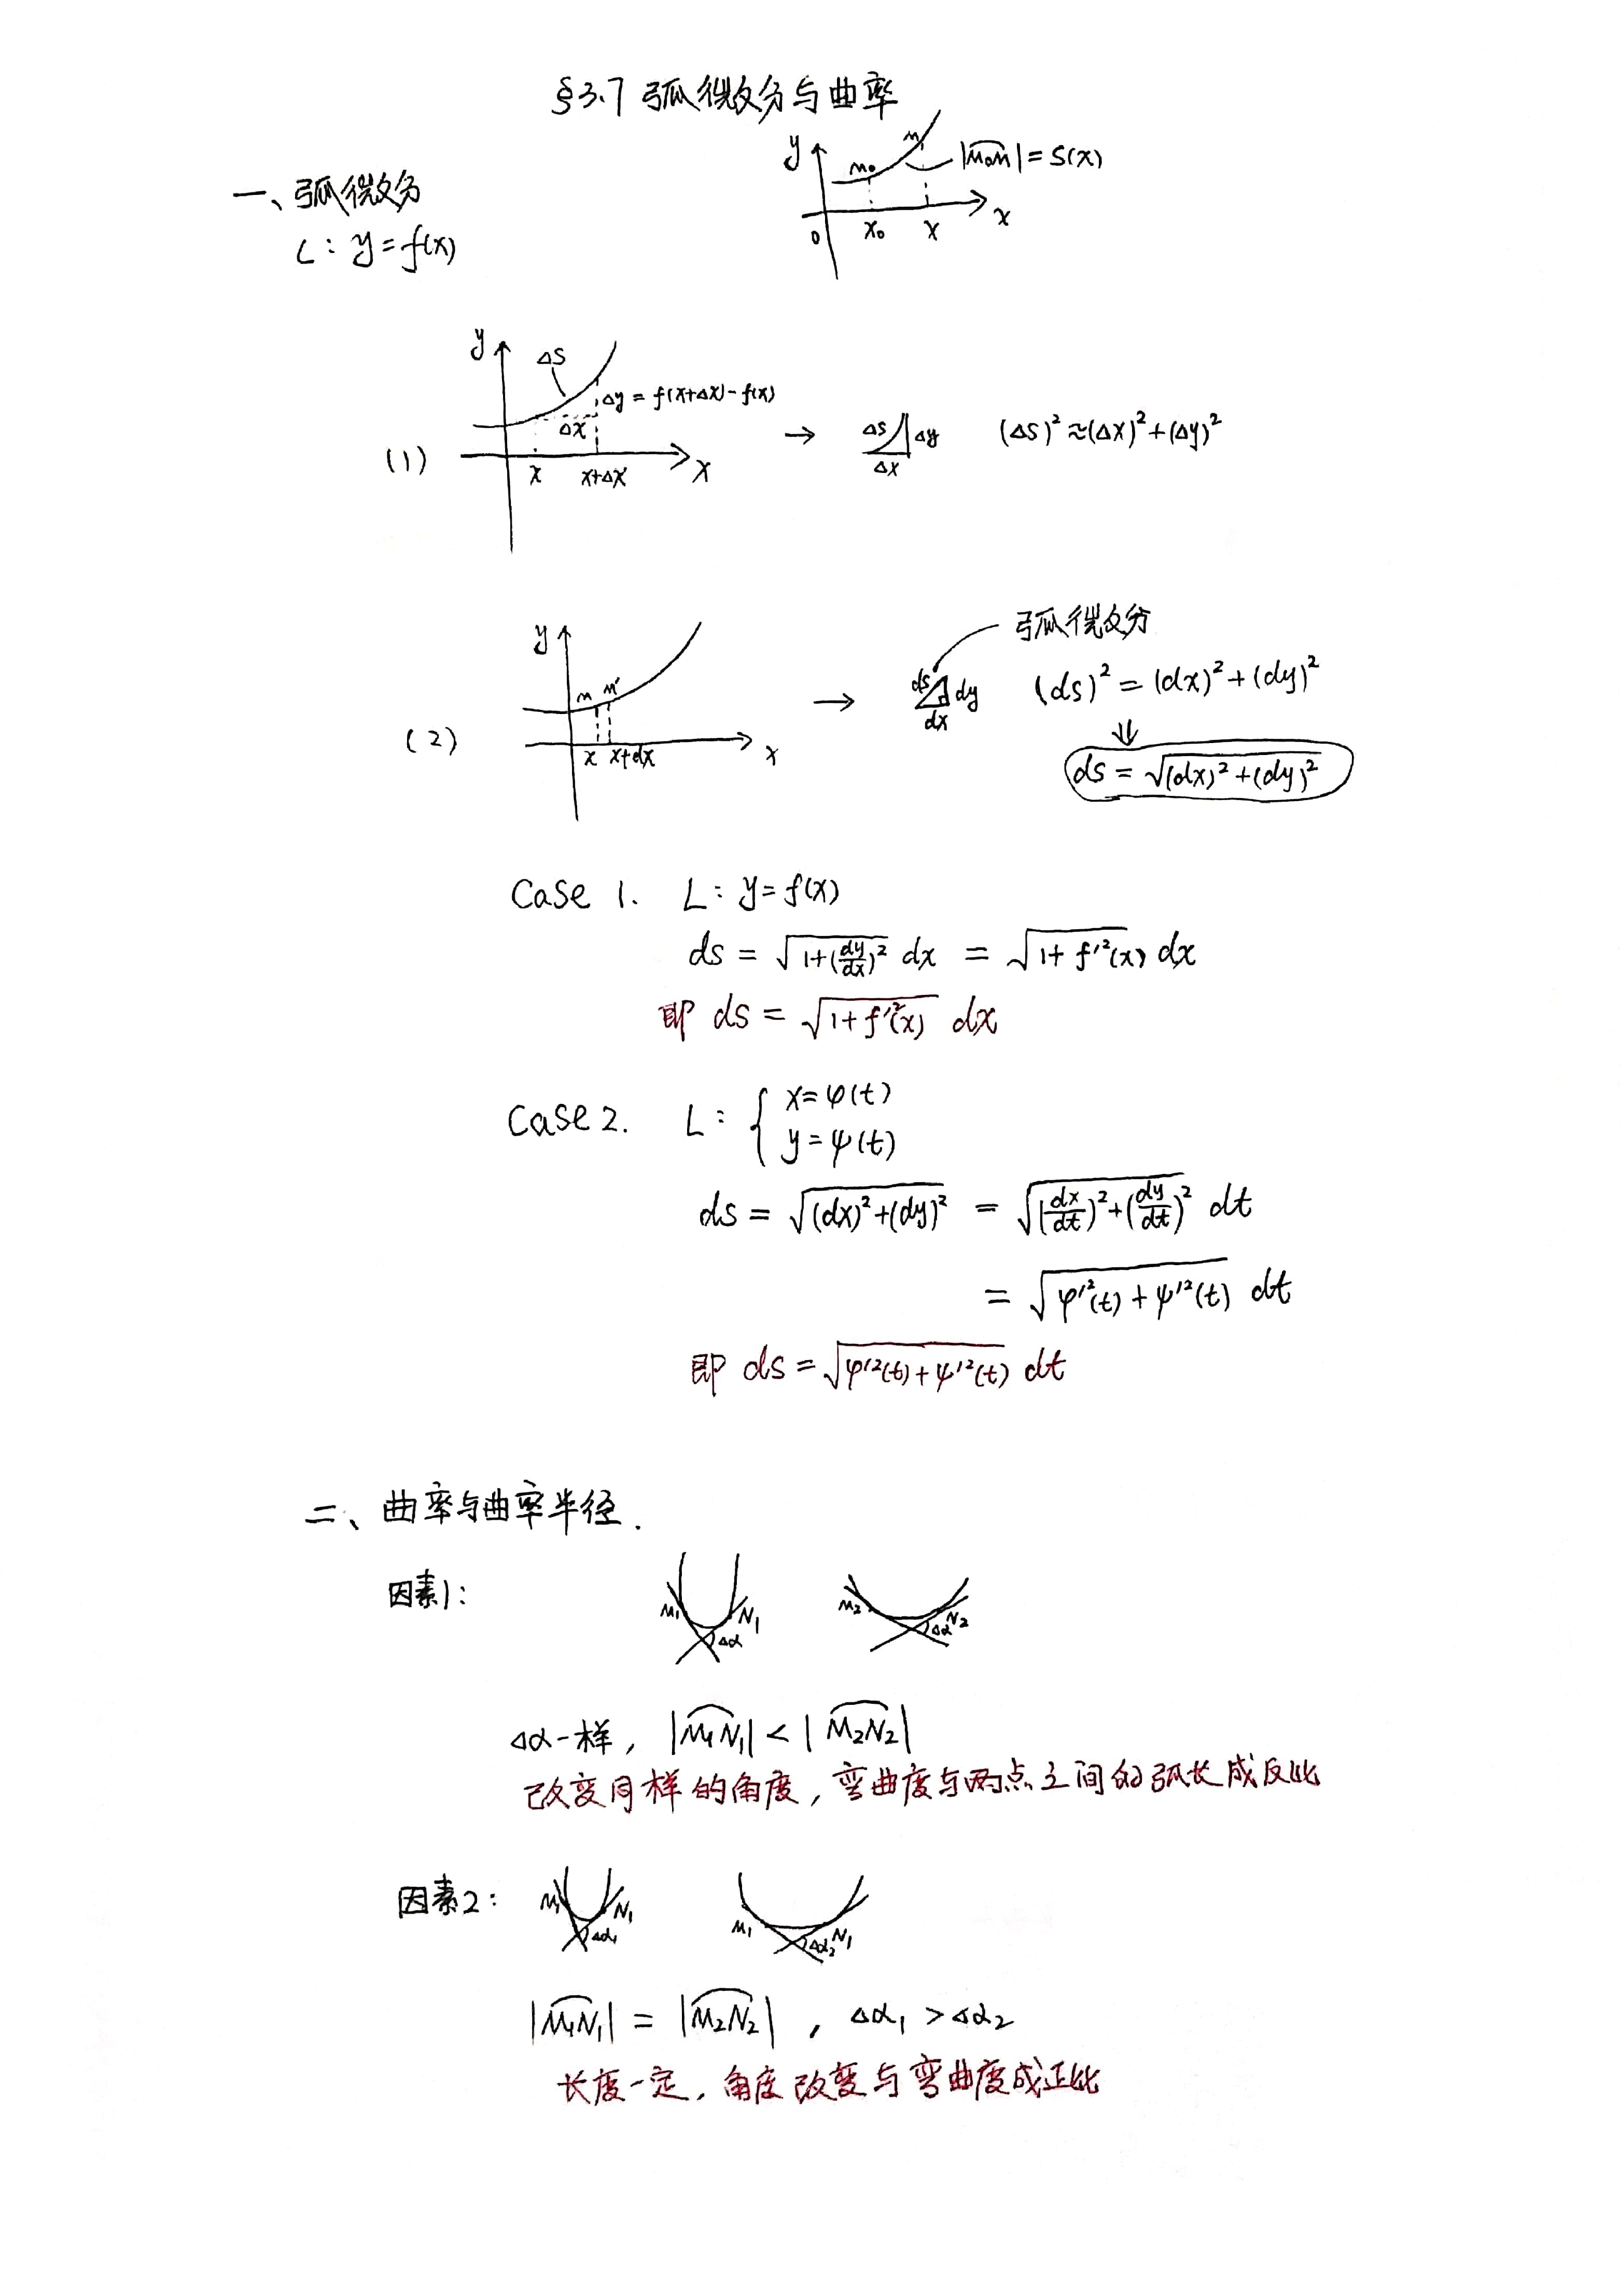 §3.7 弧微分与曲率
y M₀ M |M₀M⌒| = S(x)
0 x₀ x x
一、弧微分
L: y=f(x)
y ΔS
Δy = f(x+Δx)-f(x)
Δx
(1) x x+Δx x → ΔS Δy Δx (ΔS)²≈(Δx)²+(Δy)²
弧微分
y M M' → ds dy dx (ds)² = (dx)²+(dy)²
(2) x x+dx x
⇓
ds = √((dx)²+(dy)²)
Case 1. L: y=f(x)
ds = √(1+(dy/dx)²) dx = √(1+f'²(x)) dx
即 ds = √(1+f'²(x)) dx
Case 2. L: { x=φ(t)
y=ψ(t)
ds = √((dx)²+(dy)²) = √((dx/dt)²+(dy/dt)²) dt
= √(φ'²(t)+ψ'²(t)) dt
即 ds = √(φ'²(t)+ψ'²(t)) dt
二、曲率与曲率半径.
因素1:
M₁ N₁ Δα M₂ N₂ Δα
Δα一样, |M₁N₁⌒| < |M₂N₂⌒|
改变同样的角度, 弯曲度与两点之间的弧长成反比
因素2: M₁ N₁ Δα₁ M₁ N₁ Δα₂
|M₁N₁⌒| = |M₂N₂⌒| , Δα₁ > Δα₂
长度一定, 角度改变与弯曲度成正比